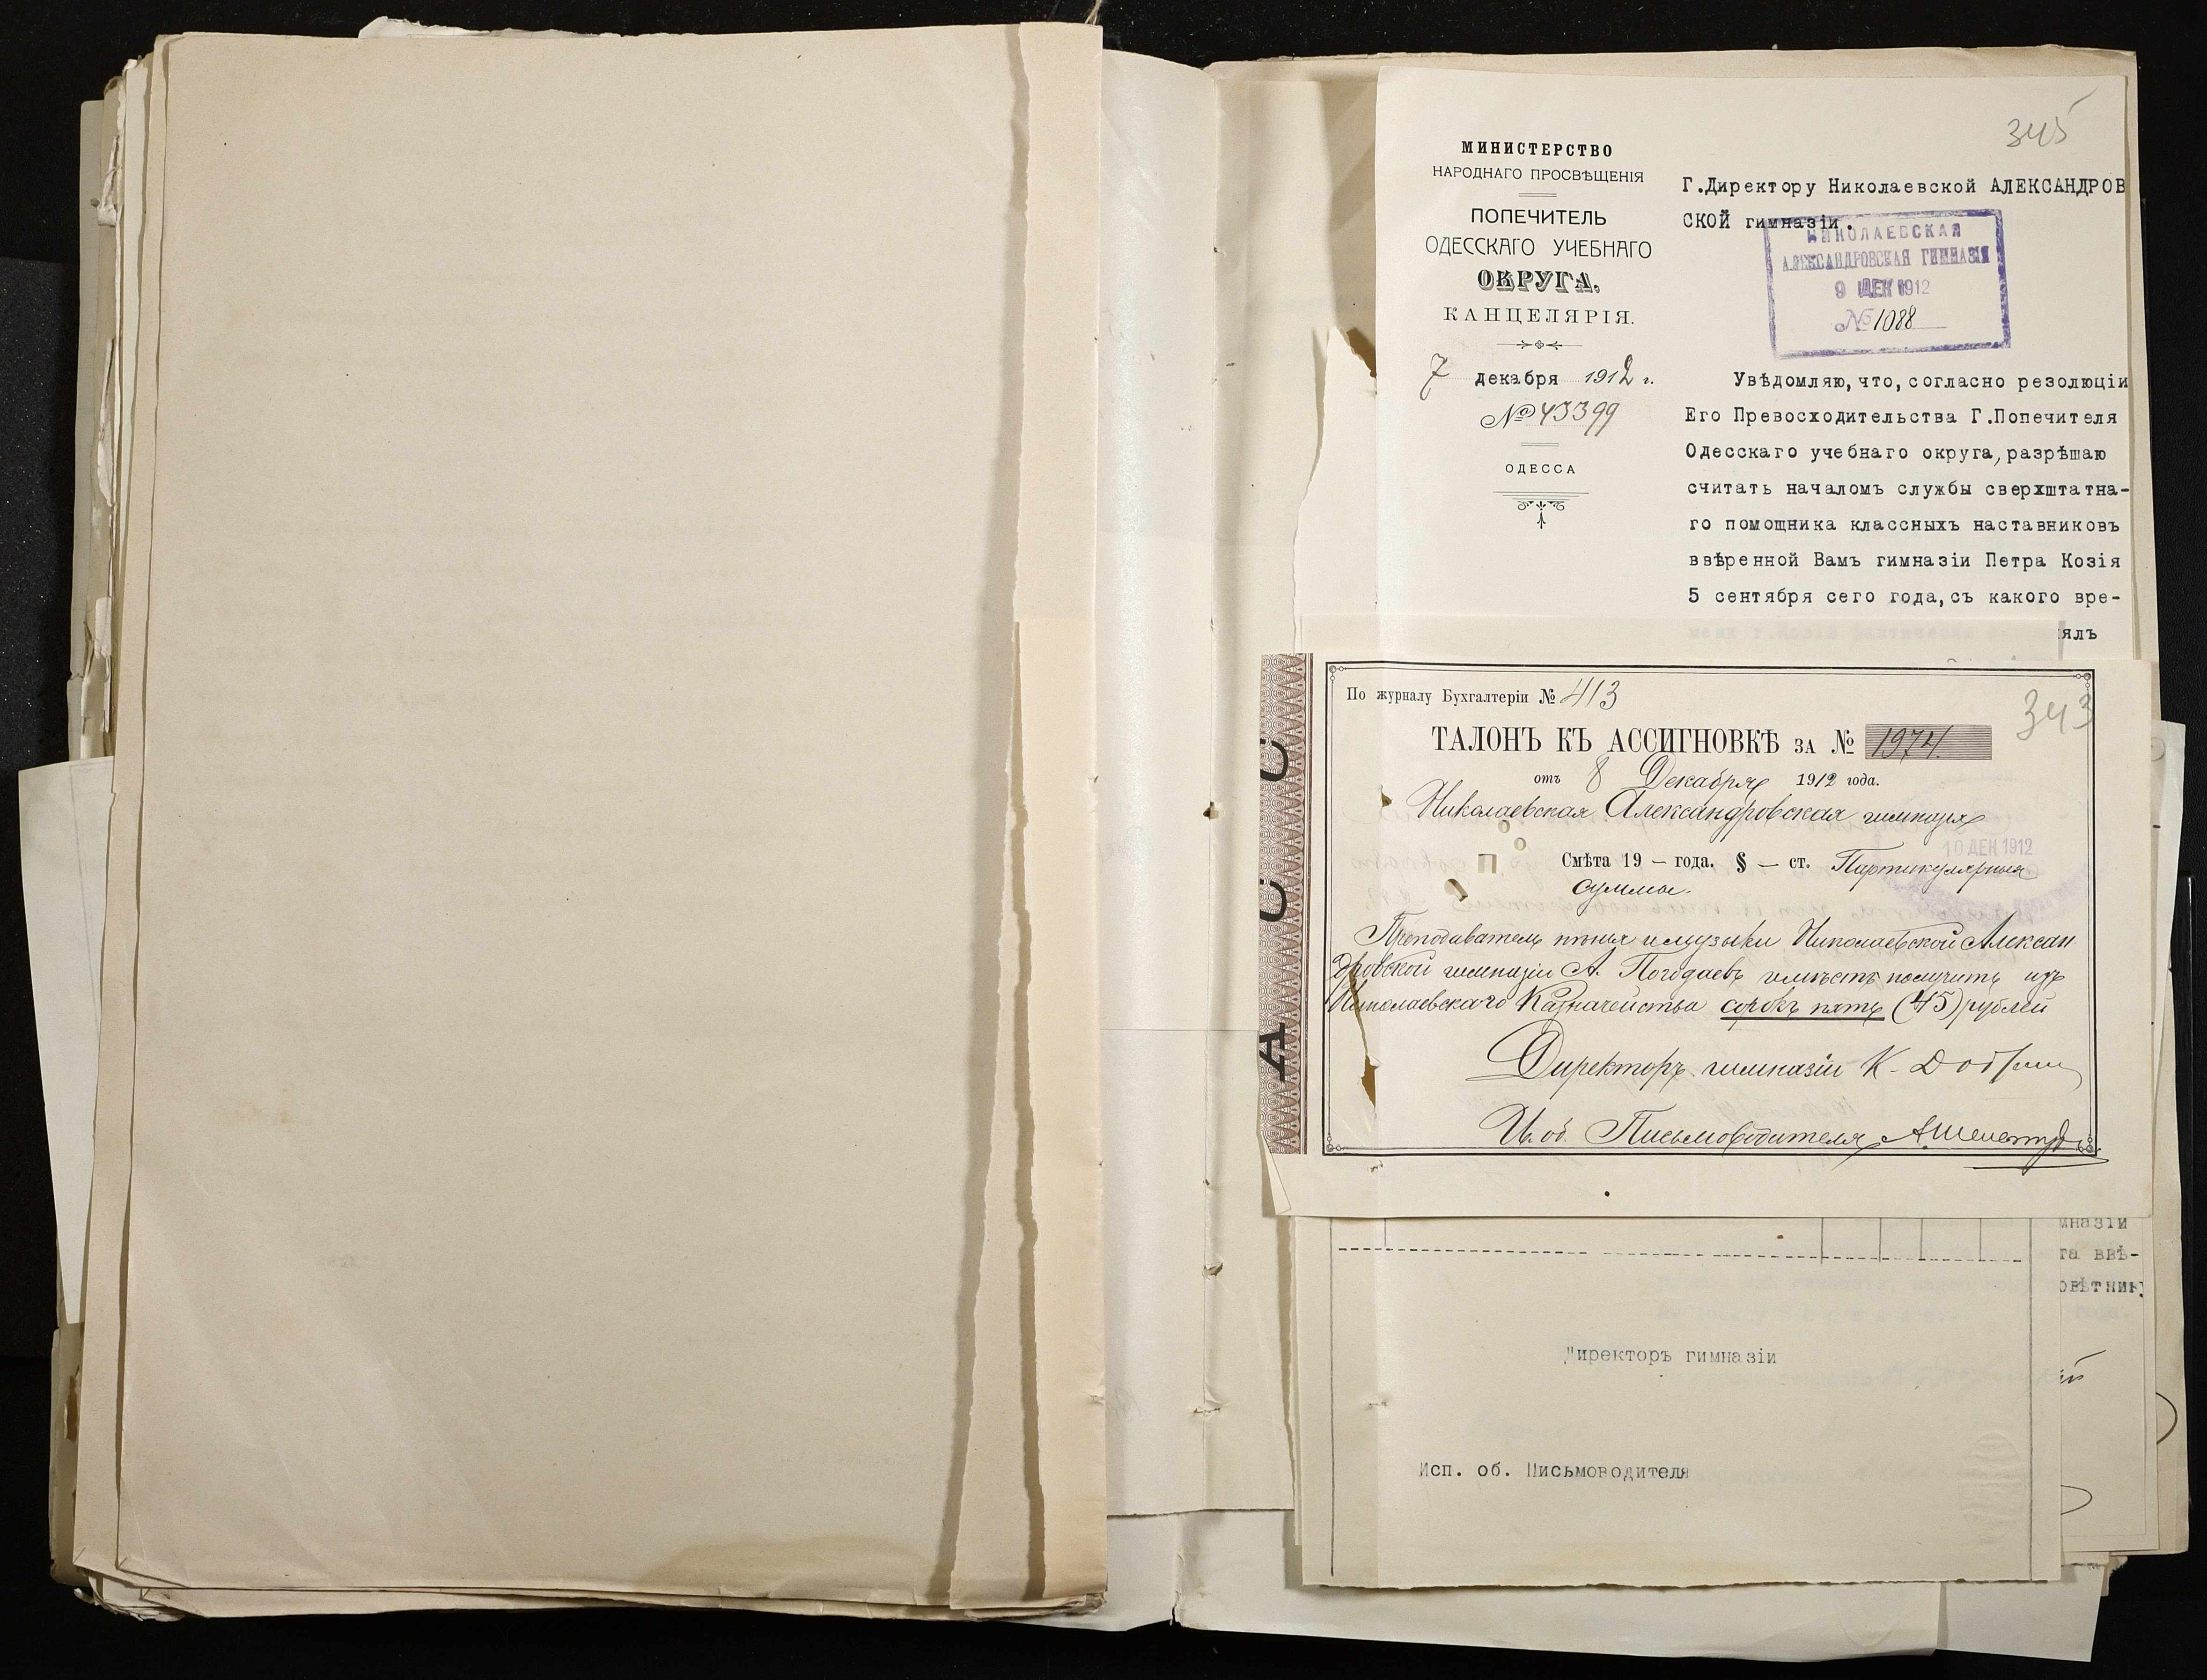 345
МИНИСТЕРСТВО
НАРОДНАГО ПРОСВѢЩЕНІЯ
ПОПЕЧИТЕЛЬ
ОДЕССКАГО УЧЕБНАГО
ОКРУГА.
КАНЦЕЛЯРІЯ.
7 декабря 1912 г.
№ 43399
ОДЕССА
Г.Директору Николаевской АЛЕКСАНДРОВ
СКОЙ гимназіи.
НИКОЛАЕВСКАЯ
АЛЕКСАНДРОВСКАЯ ГИМНАЗІЯ
9 ДЕК 1912
№ 1088
Увѣдомляю, что, согласно резолюціи
Его Превосходительства Г.Попечителя
Одесскаго учебнаго округа, разрѣшаю
считать началомъ службы сверхштатна-
го помощника классныхъ наставниковъ
ввѣренной Вамъ гимназіи Петра Козія
5 сентября сего года, съ какого вре-
ялъ
По журналу Бухгалтеріи № 413
343
ТАЛОНЪ КЪ АССИГНОВКѢ ЗА № 1974.
отъ 8 Декабря 1912 года.
Николаевская Александровская гимназія
10 ДЕК 1912
Смѣта 19 — года. § — ст. Партикулярныя
суммы.
Преподаватель пѣнія и музыки Николаевской Алексан
дровской гимназіи А. Погодаевъ имѣетъ получить изъ
Николаевскаго Казначейства сорокъ пять (45) рублей
Директоръ гимназіи К.
И. об. Письмоводителя
А С С
мназіи
та ввѣ-
овѣтник
года.
Директоръ гимназіи
Исп. об. Письмоводителя